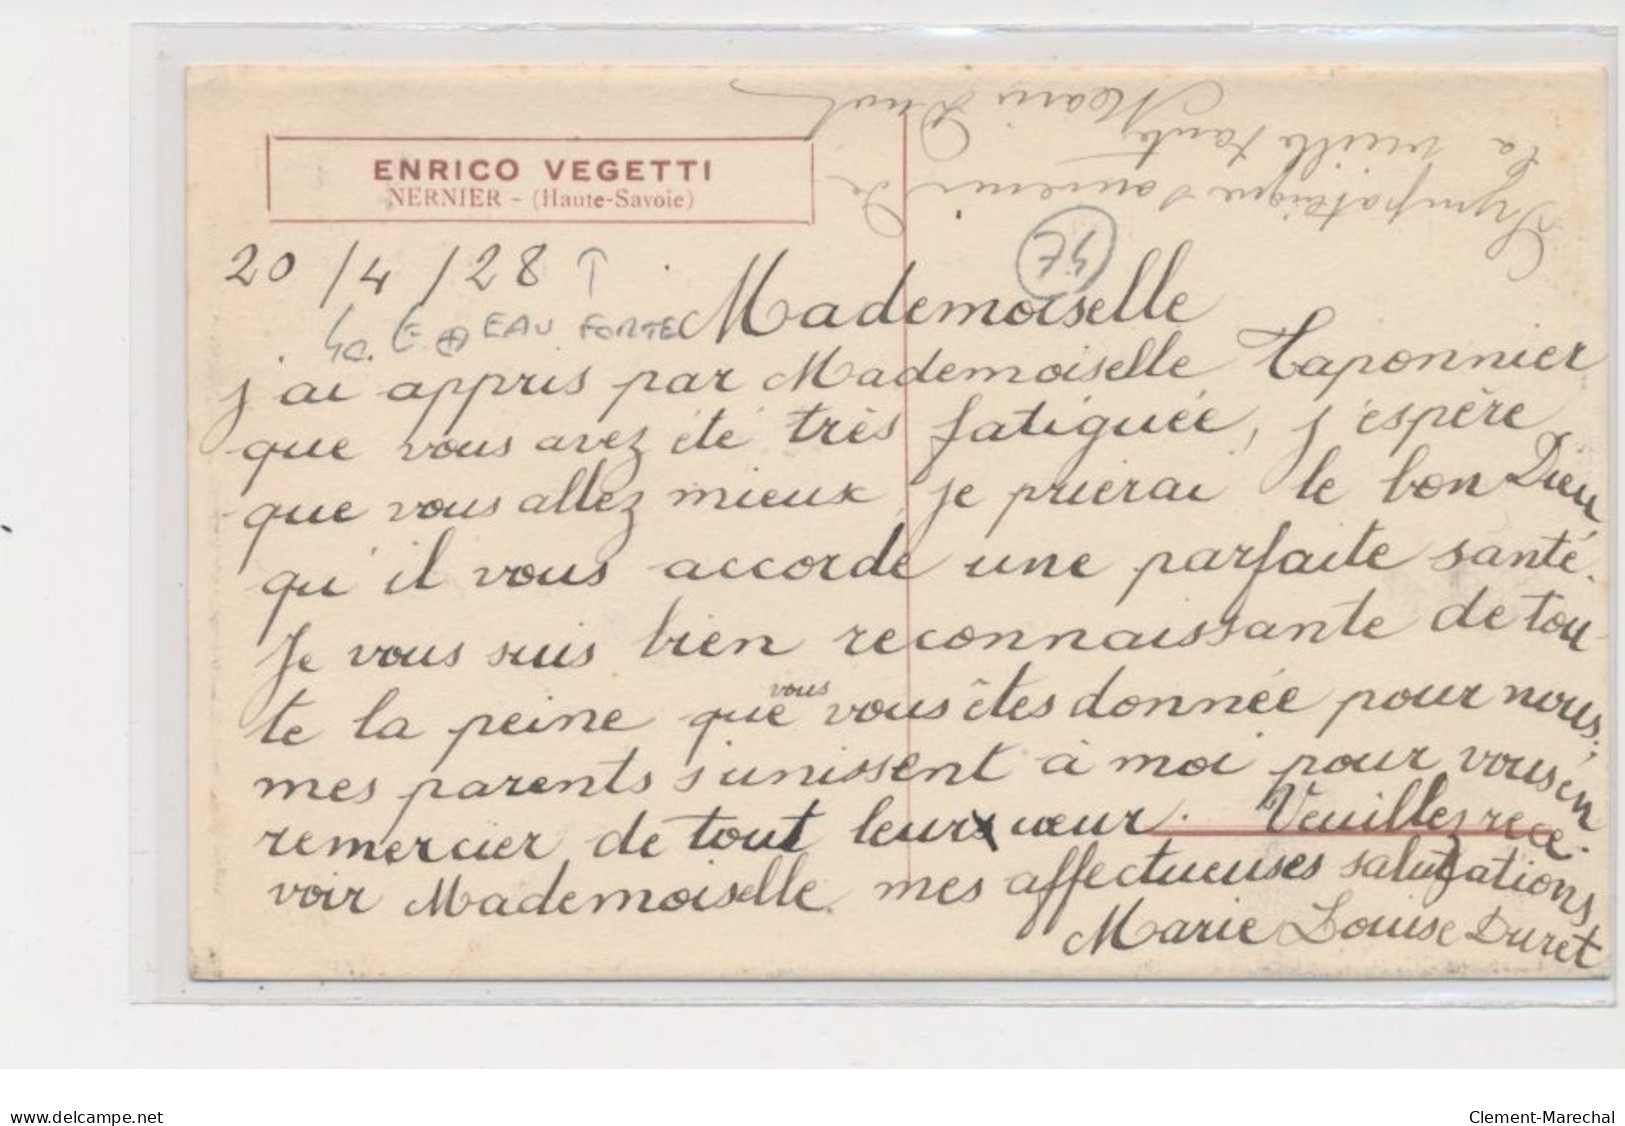 ENRICO VEGETTI
NERNIER - (Haute-Savoie)
Sympathique souvenir de
la vieille tante
Marie Duret
20/4/28
EAU FORTE
Mademoiselle
j'ai appris par Mademoiselle Taponnier
que vous avez été très fatiguée, j'espère
que vous allez mieux, je prierai le bon Dieu
qu'il vous accorde une parfaite santé.
Je vous suis bien reconnaissante de tou
te la peine que vous vous êtes donnée pour nous;
mes parents s'unissent à moi pour vous en
remercier de tout leur cœur. Veuillez rece-
voir Mademoiselle mes affectueuses salutations
Marie Louise Duret
www.delcampe.net
Clement-Marechal